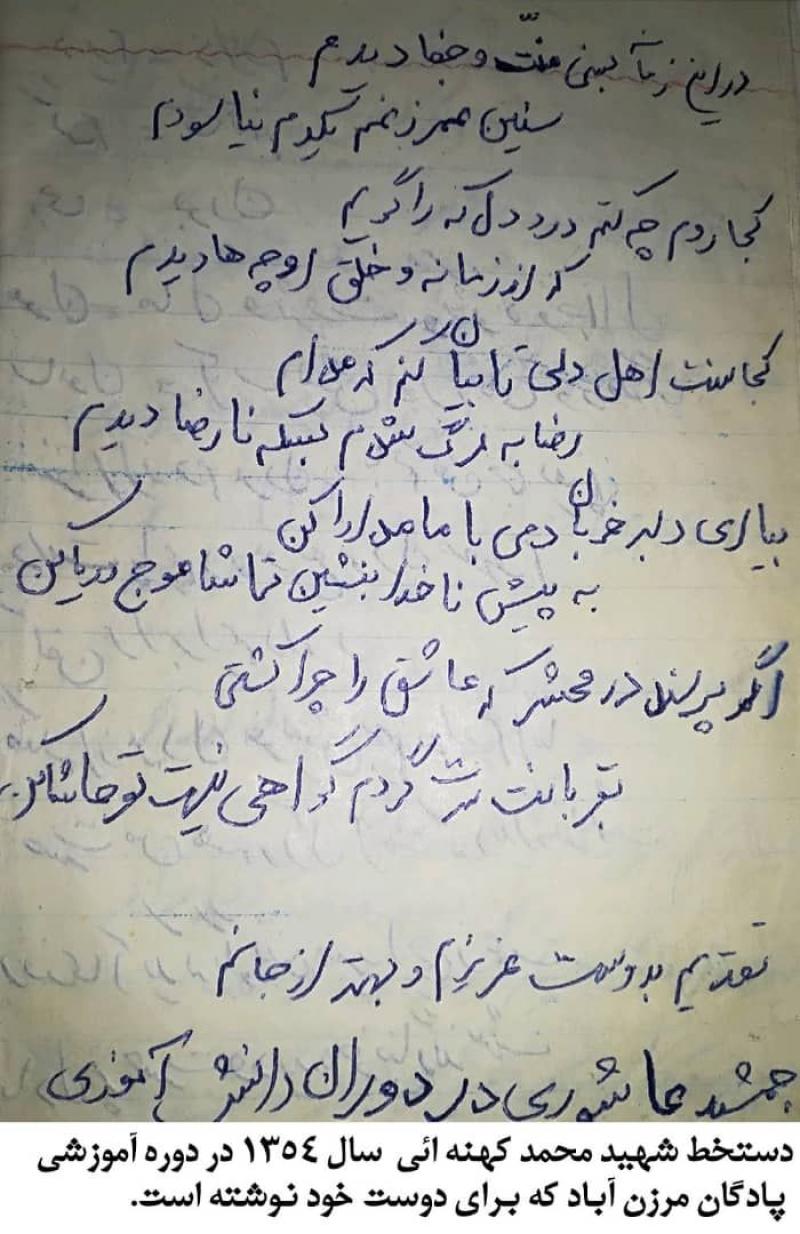 در این زمانه بسی منت و جفا دیدم
سنین عمر ز غم یکدم نیاسودم
کجا روم چه کنم درد دل که را گویم
که از زمانه و خلق او چه ها دیدم
کجاست اهل دلی تا بیان کنم که مدام
رضا به مرگ شدم بسکه نارضا دیدم
بیا ای دلبر خوبان دمی با ما مدارا کن
به پیش ناخدا بنشین تماشا موج دریا کن
اگر پرسند در محشر که عاشق را چرا کشتی
بقربانت گردم گواهی نیست تو حاشا کن
تقدیم بدوست عزیزم و بهتر از جانم
جمشید عاشوری در دوران دانش آموزی
دستخط شهید محمد کهنه ائی سال ١٣٥٤ در دوره آموزشی
پادگان مرزن آباد که برای دوست خود نوشته است.